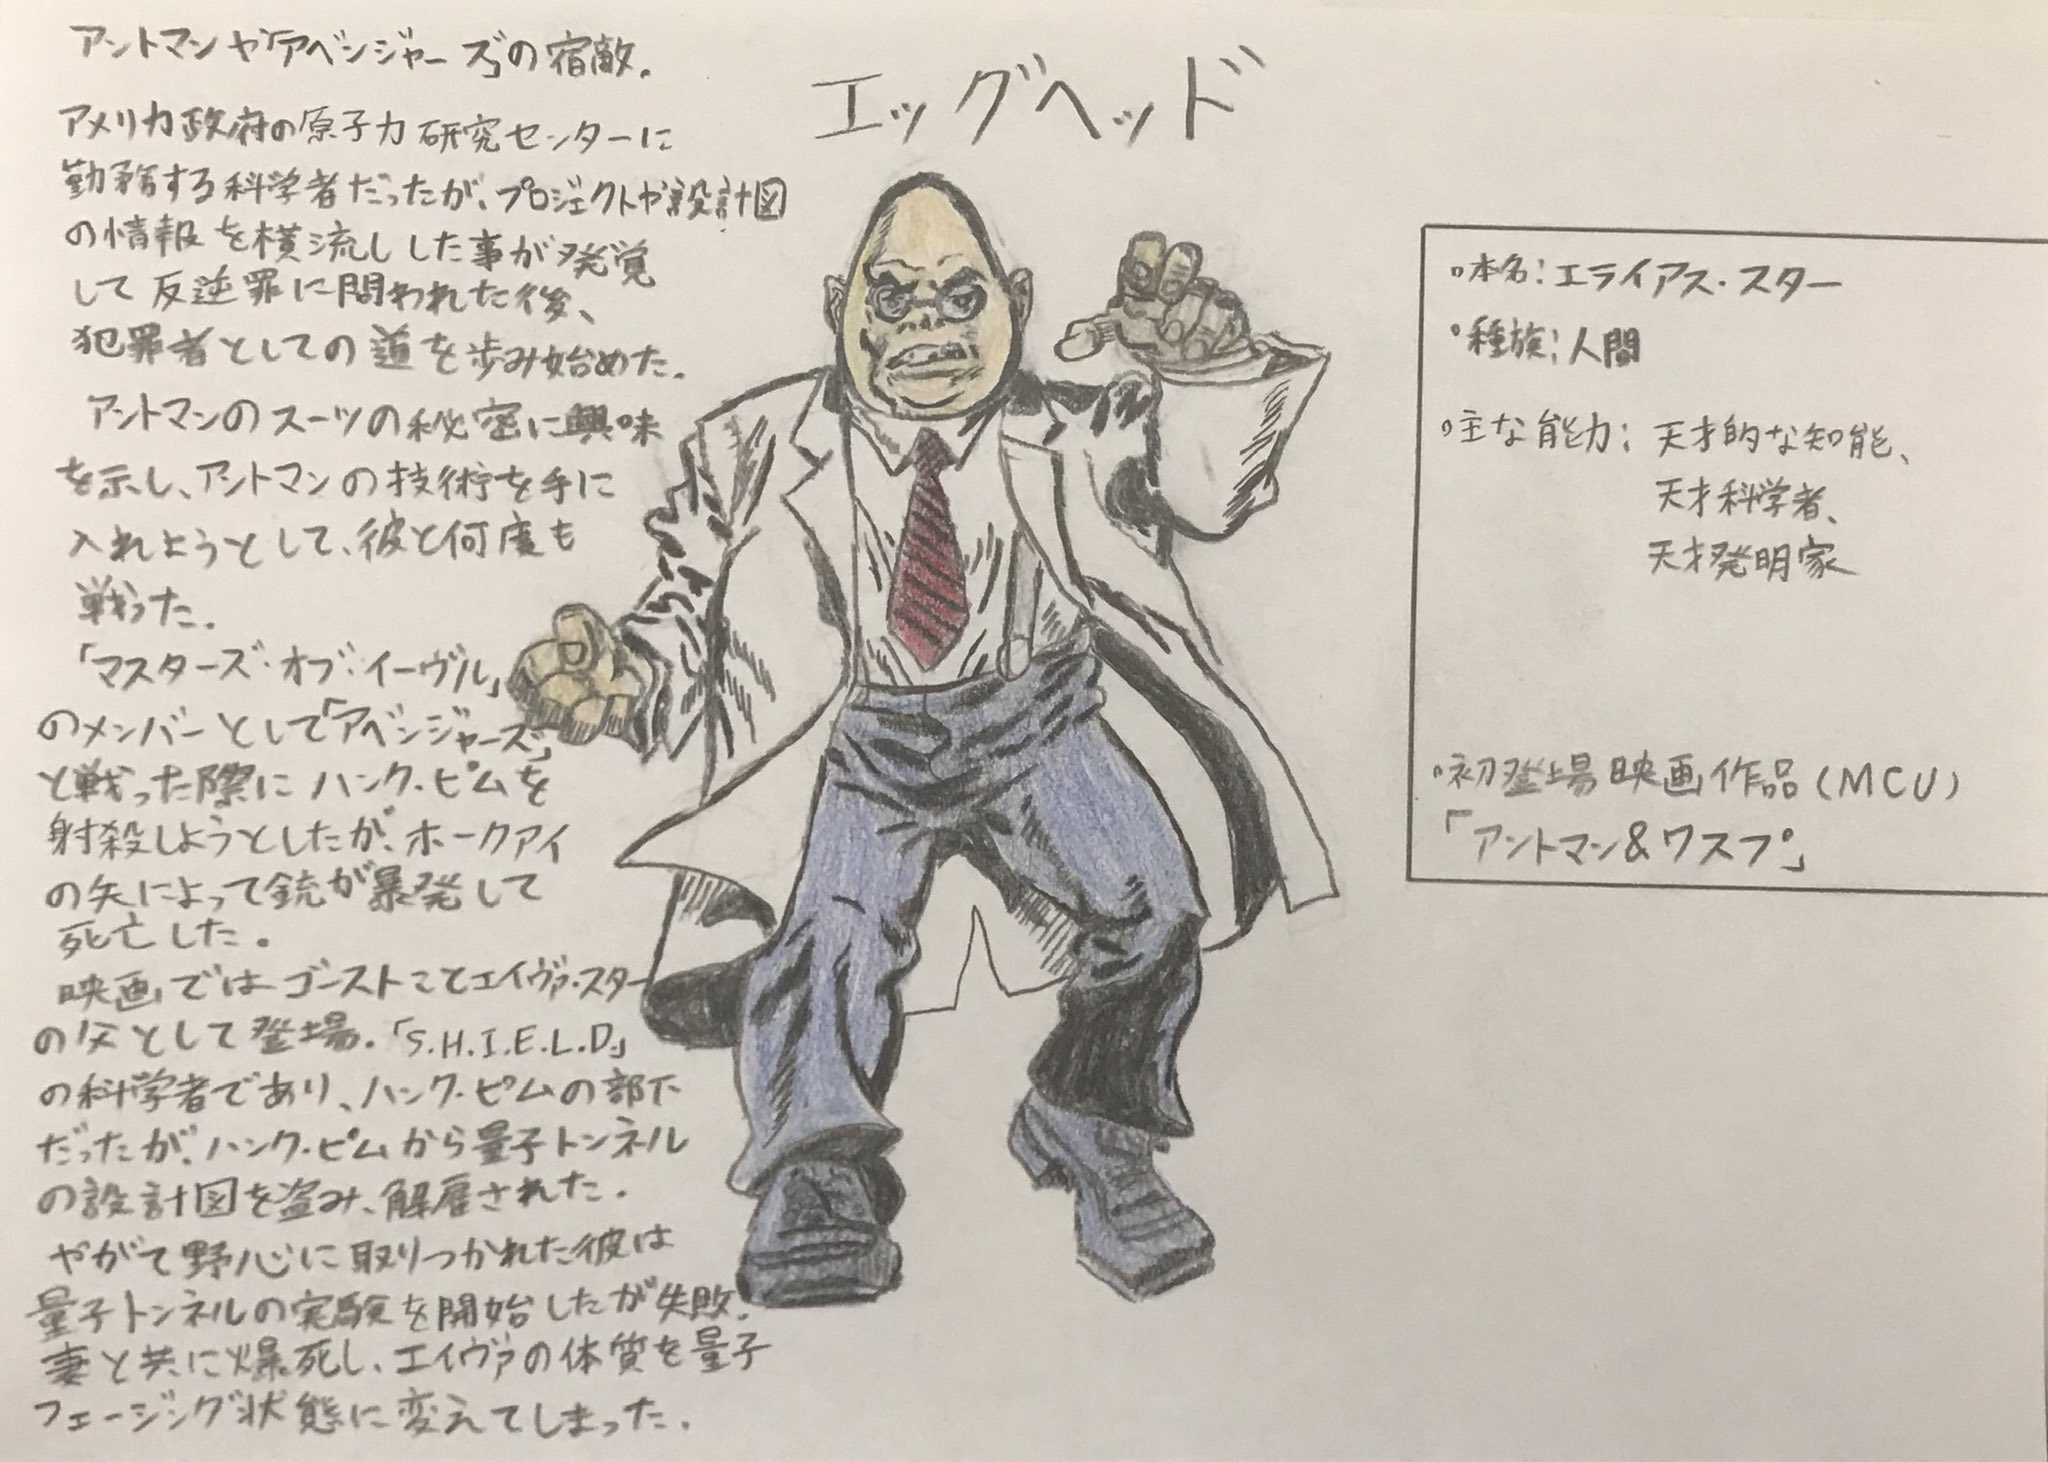 エッグヘッド
アントマンや「アベンジャーズ」の宿敵.
アメリカ政府の原子力研究センターに
勤務する科学者だったが、プロジェクトや設計図
の情報を横流しした事が発覚
して反逆罪に問われた後、
犯罪者としての道を歩み始めた.
アントマンのスーツの秘密に興味
を示し、アントマンの技術を手に
入れようとして、彼と何度も
戦った.
「マスターズ・オブ・イーヴル」
のメンバーとして「アベンジャーズ」
と戦った際にハンク・ピムを
射殺しようとしたが、ホークアイ
の矢によって銃が暴発して
死亡した。
映画ではゴーストことエイヴァ・スター
の父として登場.「S.H.I.E.L.D」
の科学者であり、ハンク・ピムの部下
だったが、ハンク・ピムから量子トンネル
の設計図を盗み、解雇された.
やがて野心に取りつかれた彼は
量子トンネルの実験を開始したが失敗.
妻と共に爆死し、エイヴァの体質を量子
フェージング状態に変えてしまった.
・本名:エライアス・スター
・種族:人間
・主な能力:天才的な知能、
天才科学者、
天才発明家
・初登場映画作品(MCU)
「アントマン&ワスプ」